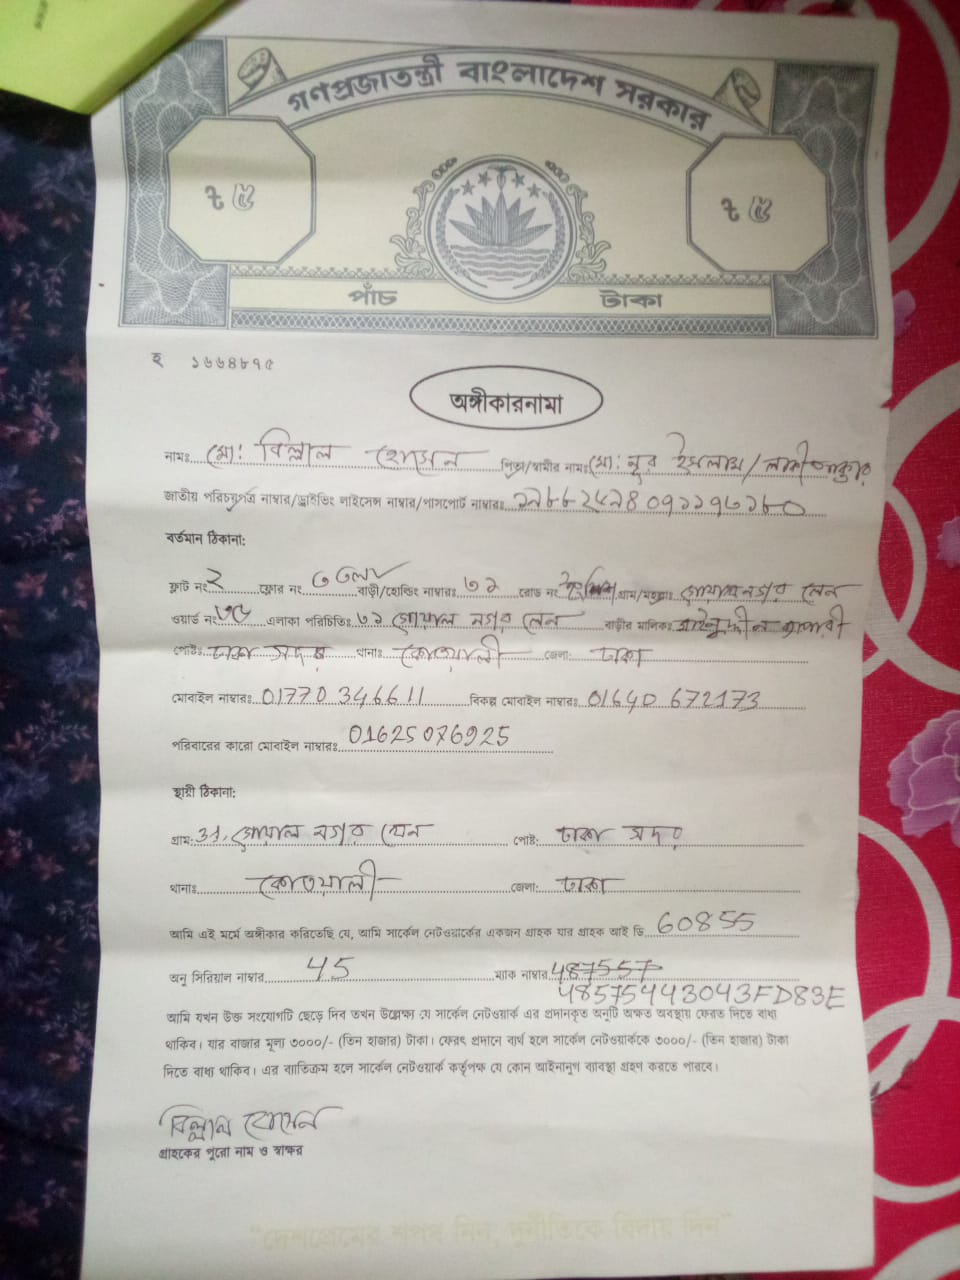 গণপ্রজাতন্ত্রী বাংলাদেশ সরকার
ট ৫ ট ৫
পাঁচ টাকা
হ ১৬৬৪৮৭৫
অঙ্গীকারনামা
নামঃ মো: বিল্লাল হোসেন পিতা/স্বামীর নামঃ মো: নুর ইসলাম/
জাতীয় পরিচয়পত্র নাম্বার/ড্রাইভিং লাইসেন্স নাম্বার/পাসপোর্ট নাম্বারঃ
বর্তমান ঠিকানা:
ফ্লাট নং ২ ফ্লোর নং ৩ তলা বাড়ী/হোল্ডিং নাম্বারঃ ৩১ রোড নং গ্রাম/মহল্লাঃ গোয়ালনগর লেন
ওয়ার্ড নং ৩৫ এলাকা পরিচিতিঃ ৩১ গোয়াল নগর লেন বাড়ীর মালিকঃ
পোষ্টঃ ঢাকা সদর থানাঃ কোতয়ালী জেলা: ঢাকা
মোবাইল নাম্বারঃ 01770 346611 বিকল্প মোবাইল নাম্বারঃ 01640 672173
পরিবারের কারো মোবাইল নাম্বারঃ 01625076925
স্থায়ী ঠিকানা:
গ্রাম: 31, গোয়াল নগর লেন পোষ্ট: ঢাকা সদর
থানাঃ কোতয়ালী জেলা: ঢাকা
আমি এই মর্মে অঙ্গীকার করিতেছি যে, আমি সার্কেল নেটওয়ার্কের একজন গ্রাহক যার গ্রাহক আই ডি 60855
অনু সিরিয়াল নাম্বার 45 ম্যাক নাম্বার
48575443043FD83E
আমি যখন উক্ত সংযোগটি ছেড়ে দিব তখন উল্লেক্ষা যে সার্কেল নেটওয়ার্ক এর প্রদানকৃত অনুটি অক্ষত অবস্থায় ফেরত দিতে বাধ্য
থাকিব। যার বাজার মূল্য ৩০০০/- (তিন হাজার) টাকা। ফেরৎ প্রদানে ব্যর্থ হলে সার্কেল নেটওয়ার্ককে ৩০০০/- (তিন হাজার) টাকা
দিতে বাধ্য থাকিব। এর ব্যতিক্রম হলে সার্কেল নেটওয়ার্ক কর্তৃপক্ষ যে কোন আইনানুগ ব্যবস্থা গ্রহণ করতে পারবে।
বিল্লাল হোসেন
গ্রাহকের পুরো নাম ও স্বাক্ষর
"দেশপ্রেমের শপথ নিন, দুর্নীতিকে বিদায় দিন"